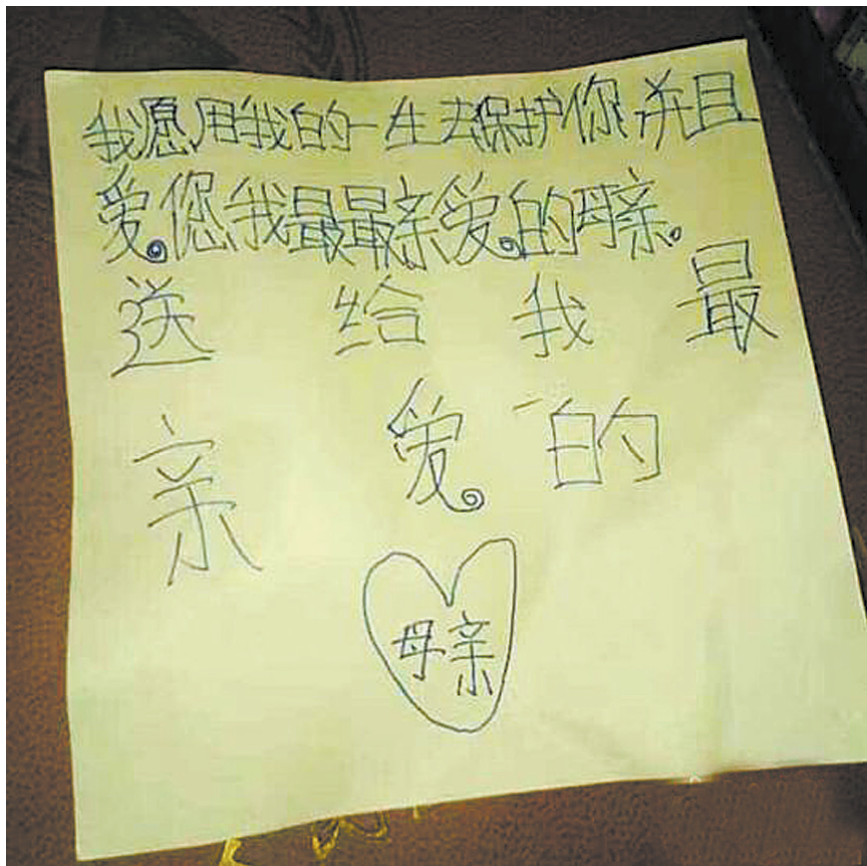 我愿用我的一生去保护你并且
爱您我最最亲爱的母亲.
送给我最
亲爱的
母亲